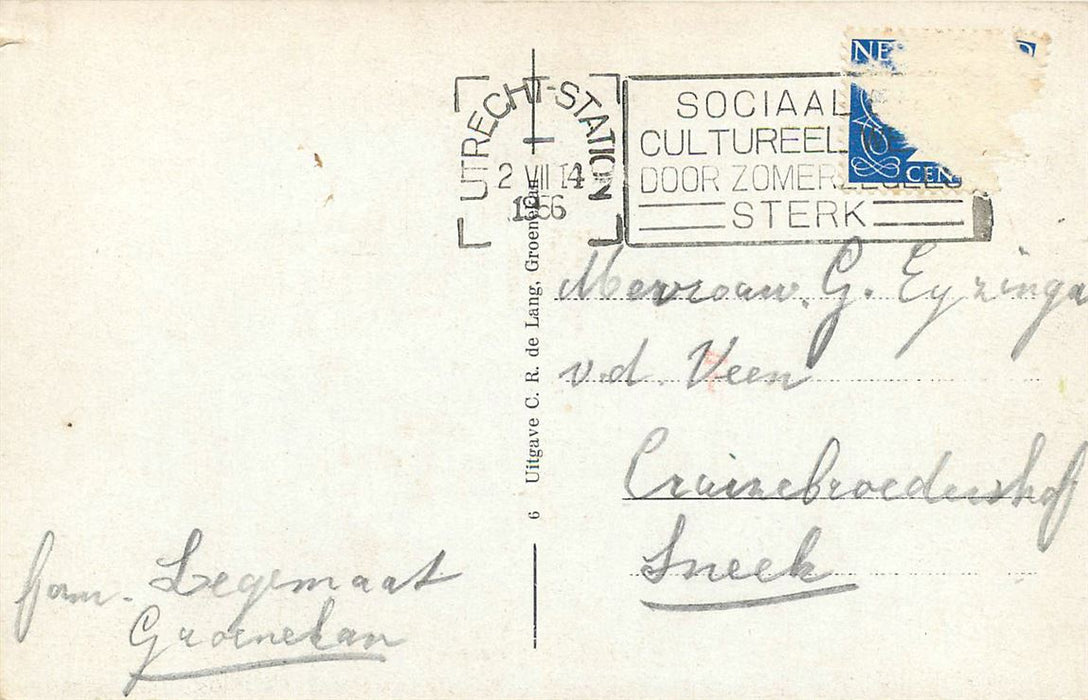 UTRECHT-STATION
2 VII 14
1956
SOCIAAL
CULTUREEL
DOOR ZOMERZEGELS
STERK
NE
D
CEN
6 Uitgave C. R. de Lang, Groenekan
Mevrouw. G. Eyzinga
v.d. Veen
Cruizebroedershof
Sneek
fam. Legemaat
Groenekan